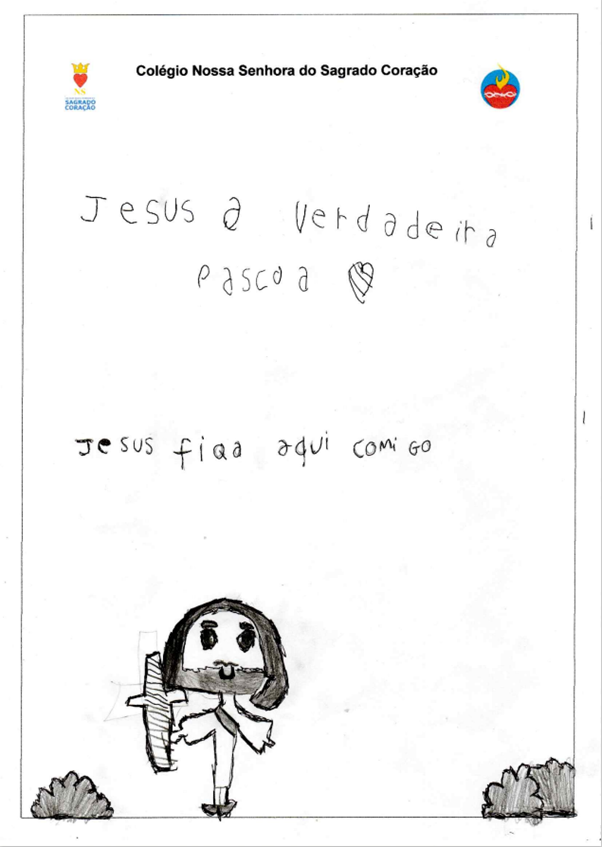 Colégio Nossa Senhora do Sagrado Coração
NS
SAGRADO
CORAÇÃO
Jesus a verdadeira
pascoa
Jesus fiqa aqui comigo